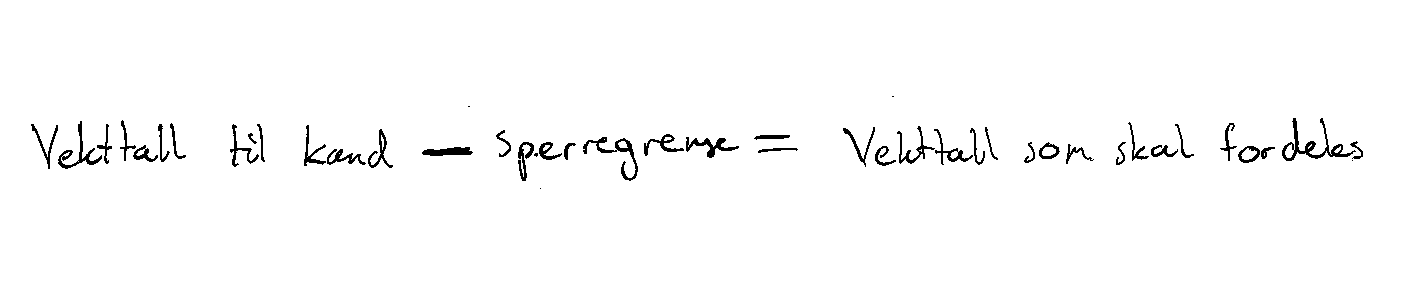 Vekttall til kand – sperregrense = Vekttall som skal fordeles